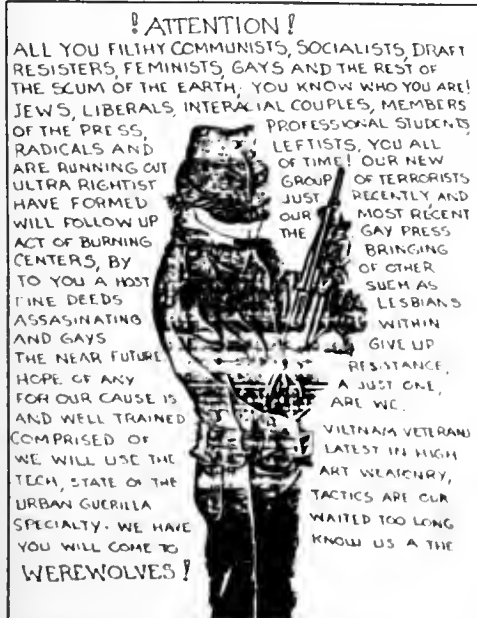 ! ATTENTION !
ALL YOU FILTHY COMMUNISTS, SOCIALISTS, DRAFT
RESISTERS, FEMINISTS, GAYS AND THE REST OF
THE SCUM OF THE EARTH, YOU KNOW WHO YOU ARE!
JEWS, LIBERALS, INTERACIAL COUPLES, MEMBERS
OF THE PRESS, PROFESSIONAL STUDENTS,
RADICALS AND LEFTISTS, YOU ALL
ARE RUNNING OUT OF TIME! OUR NEW
ULTRA RIGHTIST GROUP OF TERRORISTS
HAVE FORMED JUST RECENTLY, AND
WILL FOLLOW UP OUR MOST RECENT
ACT OF BURNING THE GAY PRESS
CENTERS, BY BRINGING
TO YOU A HOST OF OTHER
FINE DEEDS SUCH AS
ASSASINATING LESBIANS
AND GAYS WITHIN
THE NEAR FUTURE. GIVE UP
HOPE OF ANY RESISTANCE,
FOR OUR CAUSE IS A JUST ONE,
AND WELL TRAINED ARE WE.
COMPRISED OF VIETNAM VETERANS
WE WILL USE THE LATEST IN HIGH
TECH, STATE OF THE ART WEAPONRY,
URBAN GUERILLA TACTICS ARE OUR
SPECIALTY. WE HAVE WAITED TOO LONG
YOU WILL COME TO KNOW US A THE
WEREWOLVES!